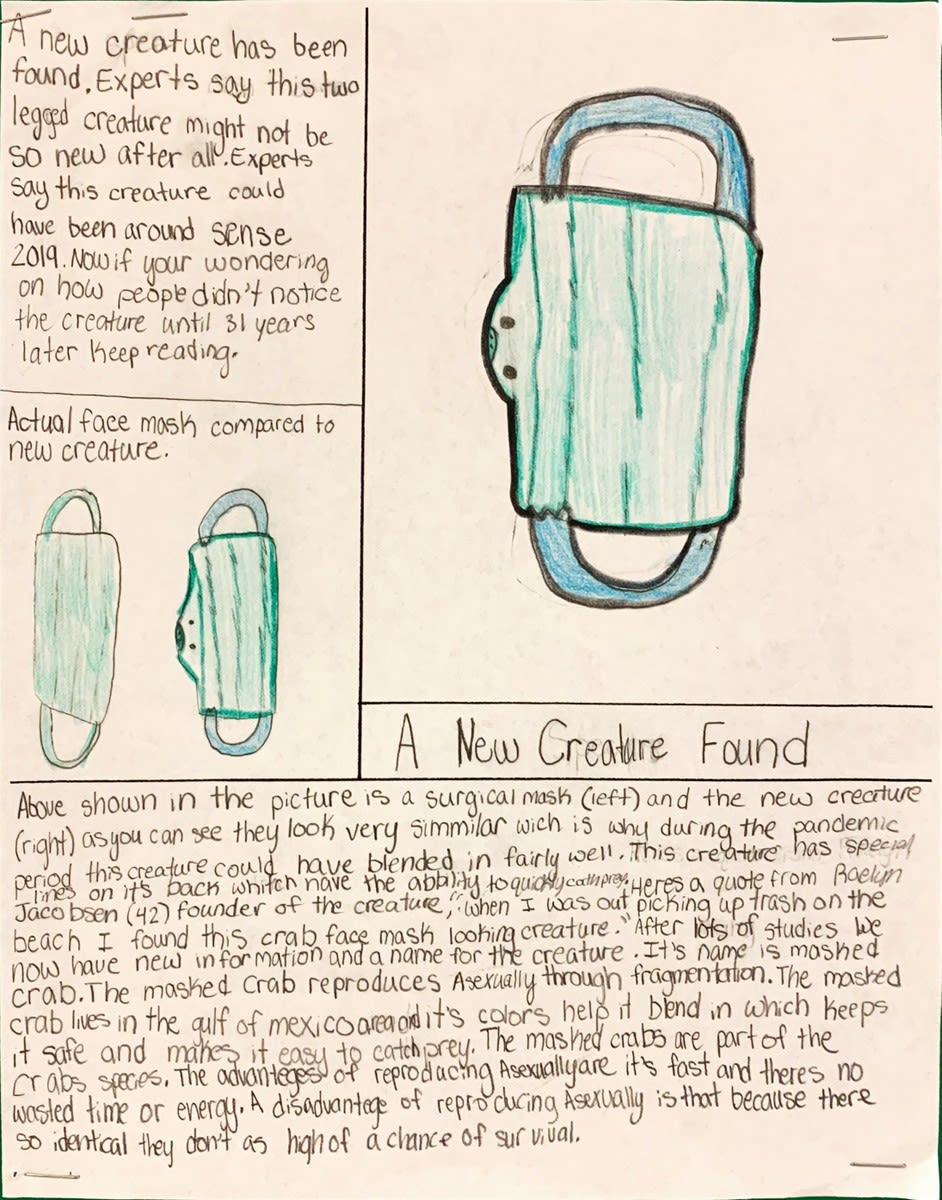 A new creature has been
found. Experts say this two
legged creature might not be
so new after all. Experts
say this creature could
have been around sense
2019. Now if your wondering
on how people didn't notice
the creature until 31 years
later keep reading.
Actual face mask compared to
new creature.
A New Creature Found
Above shown in the picture is a surgical mask (left) and the new creature
(right) as you can see they look very simmilar wich is why during the pandemic
period this creature could have blended in fairly well. This creature has special
lines on it's back whitch have the abbility to quickly catch prey. Heres a quote from Raelyn
Jacobsen (42) founder of the creature, "when I was out picking up trash on the
beach I found this crab face mask looking creature." After lots of studies we
now have new information and a name for the creature. It's name is masked
crab. The masked crab reproduces Asexually through fragmentation. The masked
crab lives in the gulf of mexico area and it's colors help it blend in which keeps
it safe and makes it easy to catch prey. The masked crabs are part of the
crabs species. The advanteges of reproducing Asexually are it's fast and theres no
wasted time or energy. A disadvantege of reproducing Asexually is that because there
so identical they don't as high of a chance of survival.